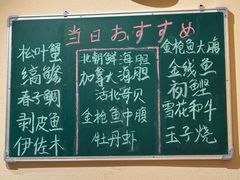 当日おすすめ
松叶蟹
缟鲹
春子鲷
剥皮鱼
伊佐木
北朝鲜海胆
加拿大海胆
活北寄贝
金枪鱼中腹
牡丹虾
金枪鱼大腹
金线鱼
初鲣
雪花和牛
玉子烧